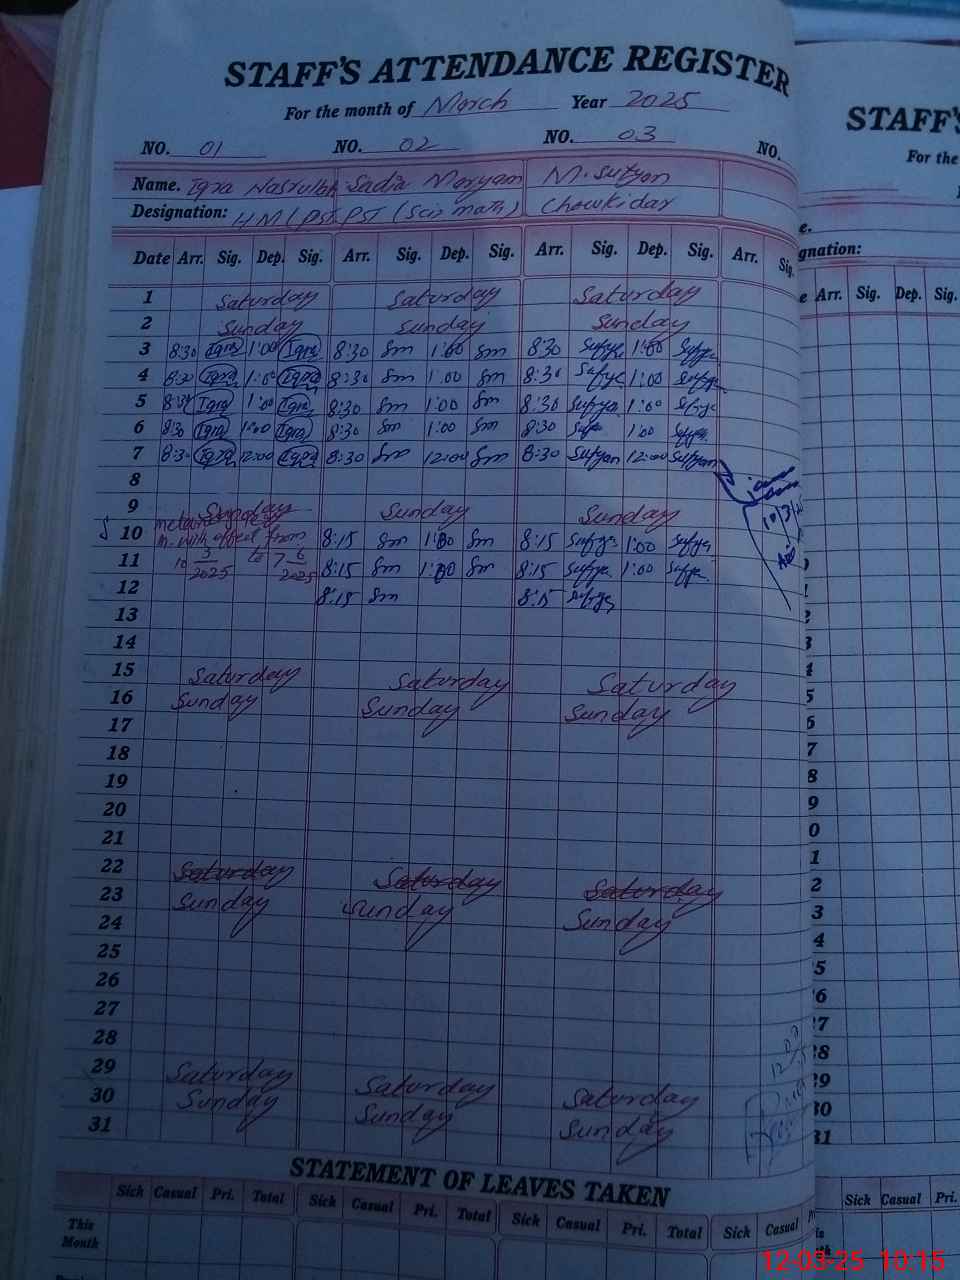 STAFF'S ATTENDANCE REGISTER
For the month of March Year 2025
NO. 01 NO. 02 NO. 03 NO.
Name. Iqra Nasrullah Sadia Maryam M. Sufyan
Designation: HM (PST PST (Sci math) Chowkidar
Date Arr. Sig. Dep. Sig. Arr. Sig. Dep. Sig. Arr. Sig. Dep. Sig. Arr. Sig.
1 Saturday Saturday Saturday
2 Sunday Sunday Sunday
3 8:30 Iqra 1:00 Iqra 8:30 Sm 1:00 Sm 8:30 Sufya 1:00 Sufya
4 8:30 Iqra 1:00 Iqra 8:30 Sm 1:00 Sm 8:30 Sufya 1:00 Sufya
5 8:30 Iqra 1:00 Iqra 8:30 Sm 1:00 Sm 8:30 Sufya 1:00 Sufya
6 8:30 Iqra 1:00 Iqra 8:30 Sm 1:00 Sm 8:30 Sufya 1:00 Sufya
7 8:30 Iqra 12:00 Iqra 8:30 Sm 12:00 Sm 8:30 Sufyan 12:00 Sufyan
8
9 Sunday Sunday Sunday
10 with effect from 8:15 Sm 1:00 Sm 8:15 Sufya 1:00 Sufya
11 10 3 2025 to 7 6 2025 8:15 Sm 1:00 Sm 8:15 Sufya 1:00 Sufya
12 8:15 Sm 8:15 Sufya
13
14
15 Saturday Saturday Saturday
16 Sunday Sunday Sunday
17
18
19
20
21
22 Saturday Saturday Saturday
23 Sunday Sunday Sunday
24
25
26
27
28
29 Saturday Saturday Saturday
30 Sunday Sunday Sunday
31
STATEMENT OF LEAVES TAKEN
Sick Casual Pri. Total Sick Casual Pri. Total Sick Casual Pri. Total Sick Casual
This Month
STAFF'S
For the
gnation:
Arr. Sig. Dep. Sig.
Sick Casual Pri.
12-03-25 10:15